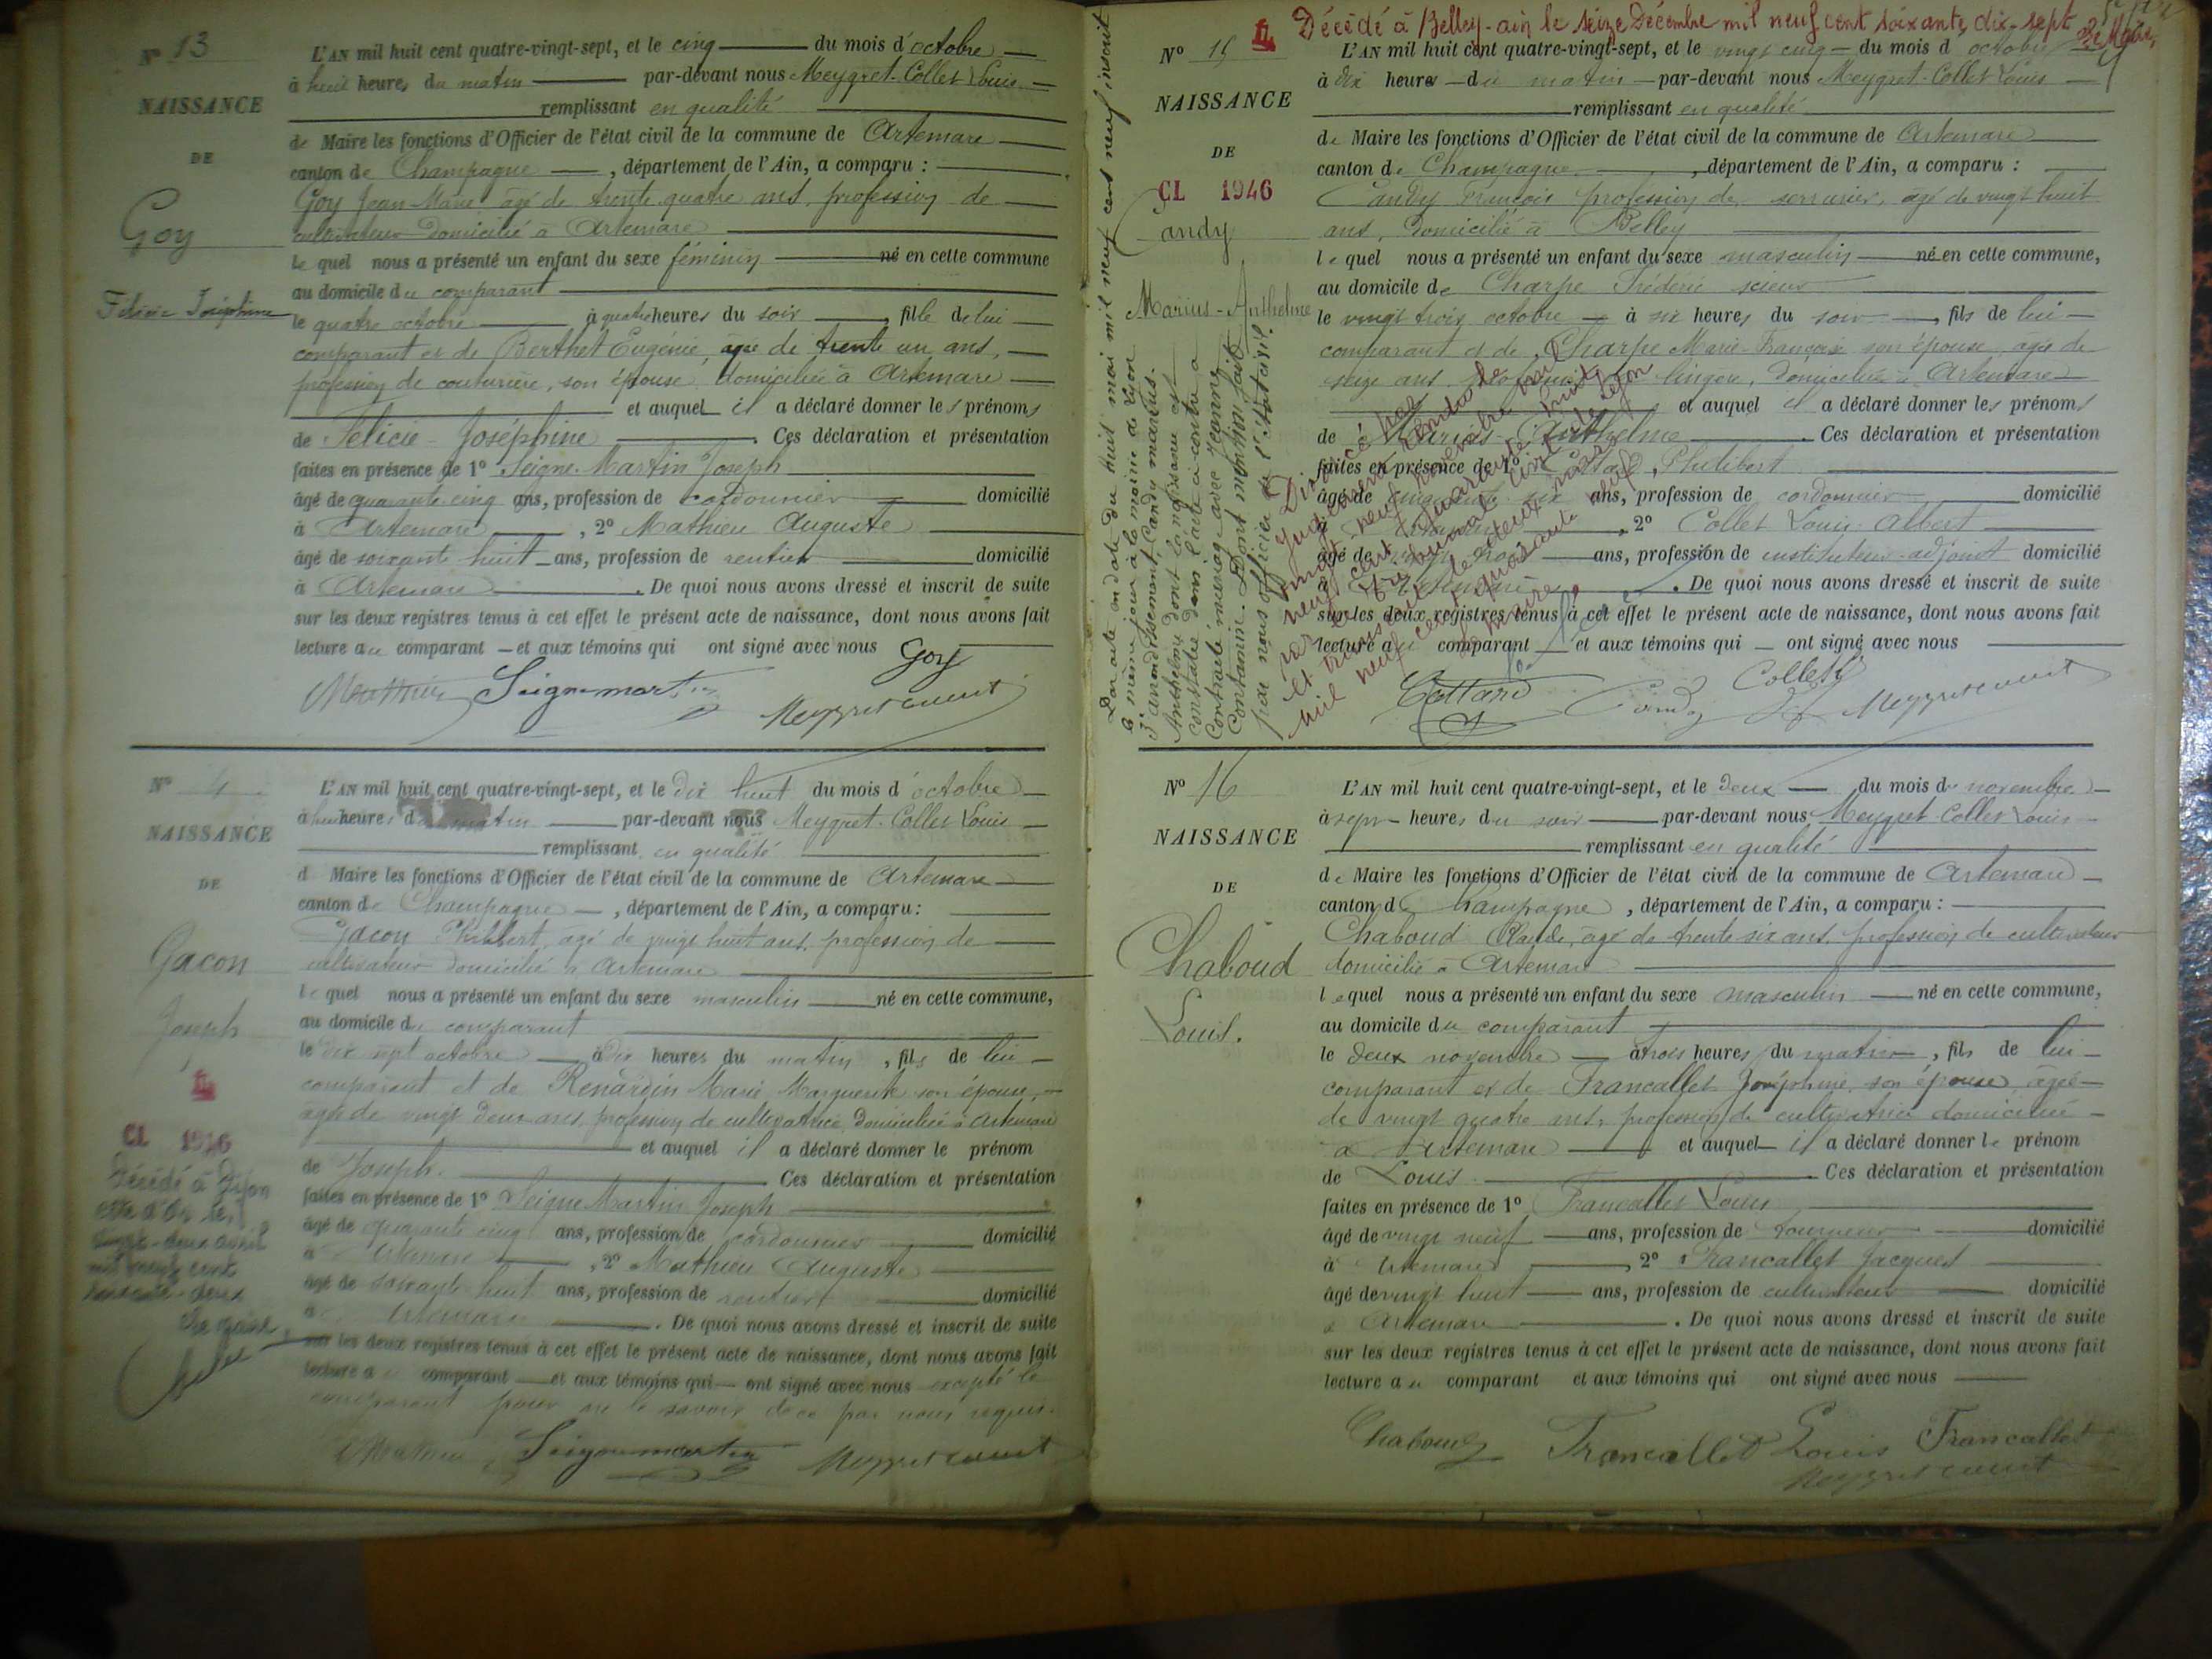 Nº 13
NAISSANCE
DE
Goy
Félicie Joséphine
L'AN mil huit cent quatre-vingt-sept, et le cinq du mois d'octobre
à huit heures du matin par-devant nous Meygret-Collet Louis
remplissant en qualité
de Maire les fonctions d'Officier de l'état civil de la commune de Artemare
canton de Champagne, département de l'Ain, a comparu :
Goy Jean Marie âgé de trente quatre ans, profession de
cultivateur domicilié à Artemare
le quel nous a présenté un enfant du sexe féminin né en cette commune
au domicile du comparant
le quatre octobre à quatre heures du soir, fille de lui
comparant et de Berthet Eugénie, agée de trente un ans,
profession de couturière, son épouse, domiciliée à Artemare
et auquel il a déclaré donner les prénoms
de Félicie-Joséphine. Ces déclaration et présentation
faites en présence de 1º Seigne-Martin Joseph
âgé de quarante cinq ans, profession de cordonnier domicilié
à Artemare, 2º Mathieu Auguste
âgé de soixante huit ans, profession de rentier domicilié
à Artemare. De quoi nous avons dressé et inscrit de suite
sur les deux registres tenus à cet effet le présent acte de naissance, dont nous avons fait
lecture au comparant et aux témoins qui ont signé avec nous Goy
Seignemartin
Nº
NAISSANCE
DE
Gacon
Joseph
CL 1946
Décédé à Dijon
Côte d'Or le
vingt-deux avril
mil neuf cent
soixante-deux
Le Maire,
L'AN mil huit cent quatre-vingt-sept, et le dix huit du mois d'octobre
à huit heures du matin par-devant nous Meygret-Collet Louis
remplissant en qualité
d Maire les fonctions d'Officier de l'état civil de la commune de Artemare
canton de Champagne, département de l'Ain, a comparu :
Gacon Philibert, agé de vingt huit ans, profession de
cultivateur domicilié à Artemare
le quel nous a présenté un enfant du sexe masculin né en cette commune,
au domicile du comparant
le dix sept octobre à dix heures du matin, fils de lui
comparant et de Renardin Marie Marguerite son épouse,
agée de vingt deux ans, profession de cultivatrice, domiciliée à Artemare
et auquel il a déclaré donner le prénom
de Joseph. Ces déclaration et présentation
faites en présence de 1º Seigne Martin Joseph
âgé de quarante cinq ans, profession de cordonnier domicilié
à Artemare, 2º Mathieu Auguste
âgé de soixante huit ans, profession de rentier domicilié
à Artemare. De quoi nous avons dressé et inscrit de suite
sur les deux registres tenus à cet effet le présent acte de naissance, dont nous avons fait
lecture au comparant et aux témoins qui ont signé avec nous excepté le
comparant pour ne le savoir de ce par nous requis.
Seignemartin
Décédé à Belley-ain le seize Décembre mil neuf cent soixante, dix-sept Le Maire,
Nº 15
NAISSANCE
DE
CL 1946
Candy
Marius-Anthelme
Par acte en date du huit mai mil neuf cent neuf inscrit
le même jour à la mairie de Lyon
3e arrondissement, Candy Marius-
Anthelme dont la naissance est
constatée dans l'acte ci-contre a
contracté mariage avec Jeanne
Contamin. Dont mention faite
par nous officier de l'état civil.
L'AN mil huit cent quatre-vingt-sept, et le vingt cinq du mois d octobre
à dix heures du matin par-devant nous Meygret-Collet Louis
remplissant en qualité
de Maire les fonctions d'Officier de l'état civil de la commune de Artemare
canton de Champagne, département de l'Ain, a comparu :
Candy François profession de serrurier, agé de vingt huit
ans, domicilié à Belley
le quel nous a présenté un enfant du sexe masculin né en cette commune,
au domicile de Charpe Frédéric scieur
le vingt trois octobre à six heures du soir, fils de lui
comparant et de Charpe Marie-Françoise son épouse, agée de
seize ans, profession de lingère, domiciliée à Artemare
et auquel il a déclaré donner les prénoms
de Marius-Anthelme. Ces déclaration et présentation
faites en présence de 1º Cottard, Philibert
âgé de cinquante six ans, profession de cordonnier domicilié
à Artemare, 2º Collet Louis Albert
âgé de vingt trois ans, profession de instituteur-adjoint domicilié
à Artemare. De quoi nous avons dressé et inscrit de suite
sur les deux registres tenus à cet effet le présent acte de naissance, dont nous avons fait
lecture au comparant et aux témoins qui ont signé avec nous
Divorcé par
jugement rendu le
neuf novembre mil
neuf cent quarante huit
par le tribunal civil de Lyon
mil neuf cent quarante neuf
Le Maire
Cottard Candy Collet
Nº 16
NAISSANCE
DE
Chaboud
Louis.
L'AN mil huit cent quatre-vingt-sept, et le deux du mois de novembre
à sept heures du soir par-devant nous Meygret-Collet Louis
remplissant en qualité
de Maire les fonctions d'Officier de l'état civil de la commune de Artemare
canton de Champagne, département de l'Ain, a comparu :
Chaboud Claude, âgé de trente six ans, profession de cultivateur
domicilié à Artemare
le quel nous a présenté un enfant du sexe masculin né en cette commune,
au domicile du comparant
le deux novembre à trois heures du matin, fils de lui
comparant et de Francallet Joséphine, son épouse, âgée
de vingt quatre ans, profession de cultivatrice domiciliée
à Artemare et auquel il a déclaré donner le prénom
de Louis. Ces déclaration et présentation
faites en présence de 1º Francallet Louis
âgé de vingt neuf ans, profession de tourneur domicilié
à Artemare, 2º Francallet Jacques
âgé de vingt huit ans, profession de cultivateur domicilié
à Artemare. De quoi nous avons dressé et inscrit de suite
sur les deux registres tenus à cet effet le présent acte de naissance, dont nous avons fait
lecture au comparant et aux témoins qui ont signé avec nous
Chaboud Francallet Louis Francallet